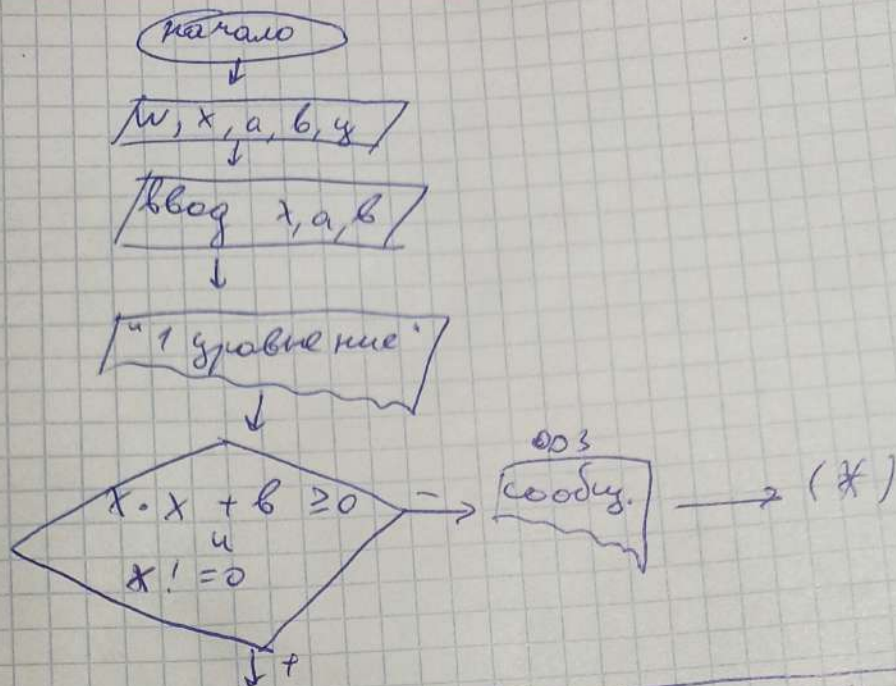 начало
w, x, a, b, y
ввод x, a, b
"1 уравнение"
x · x + b ≥ 0
и
x != 0
-
ОДЗ
сообщ.
(*)
+